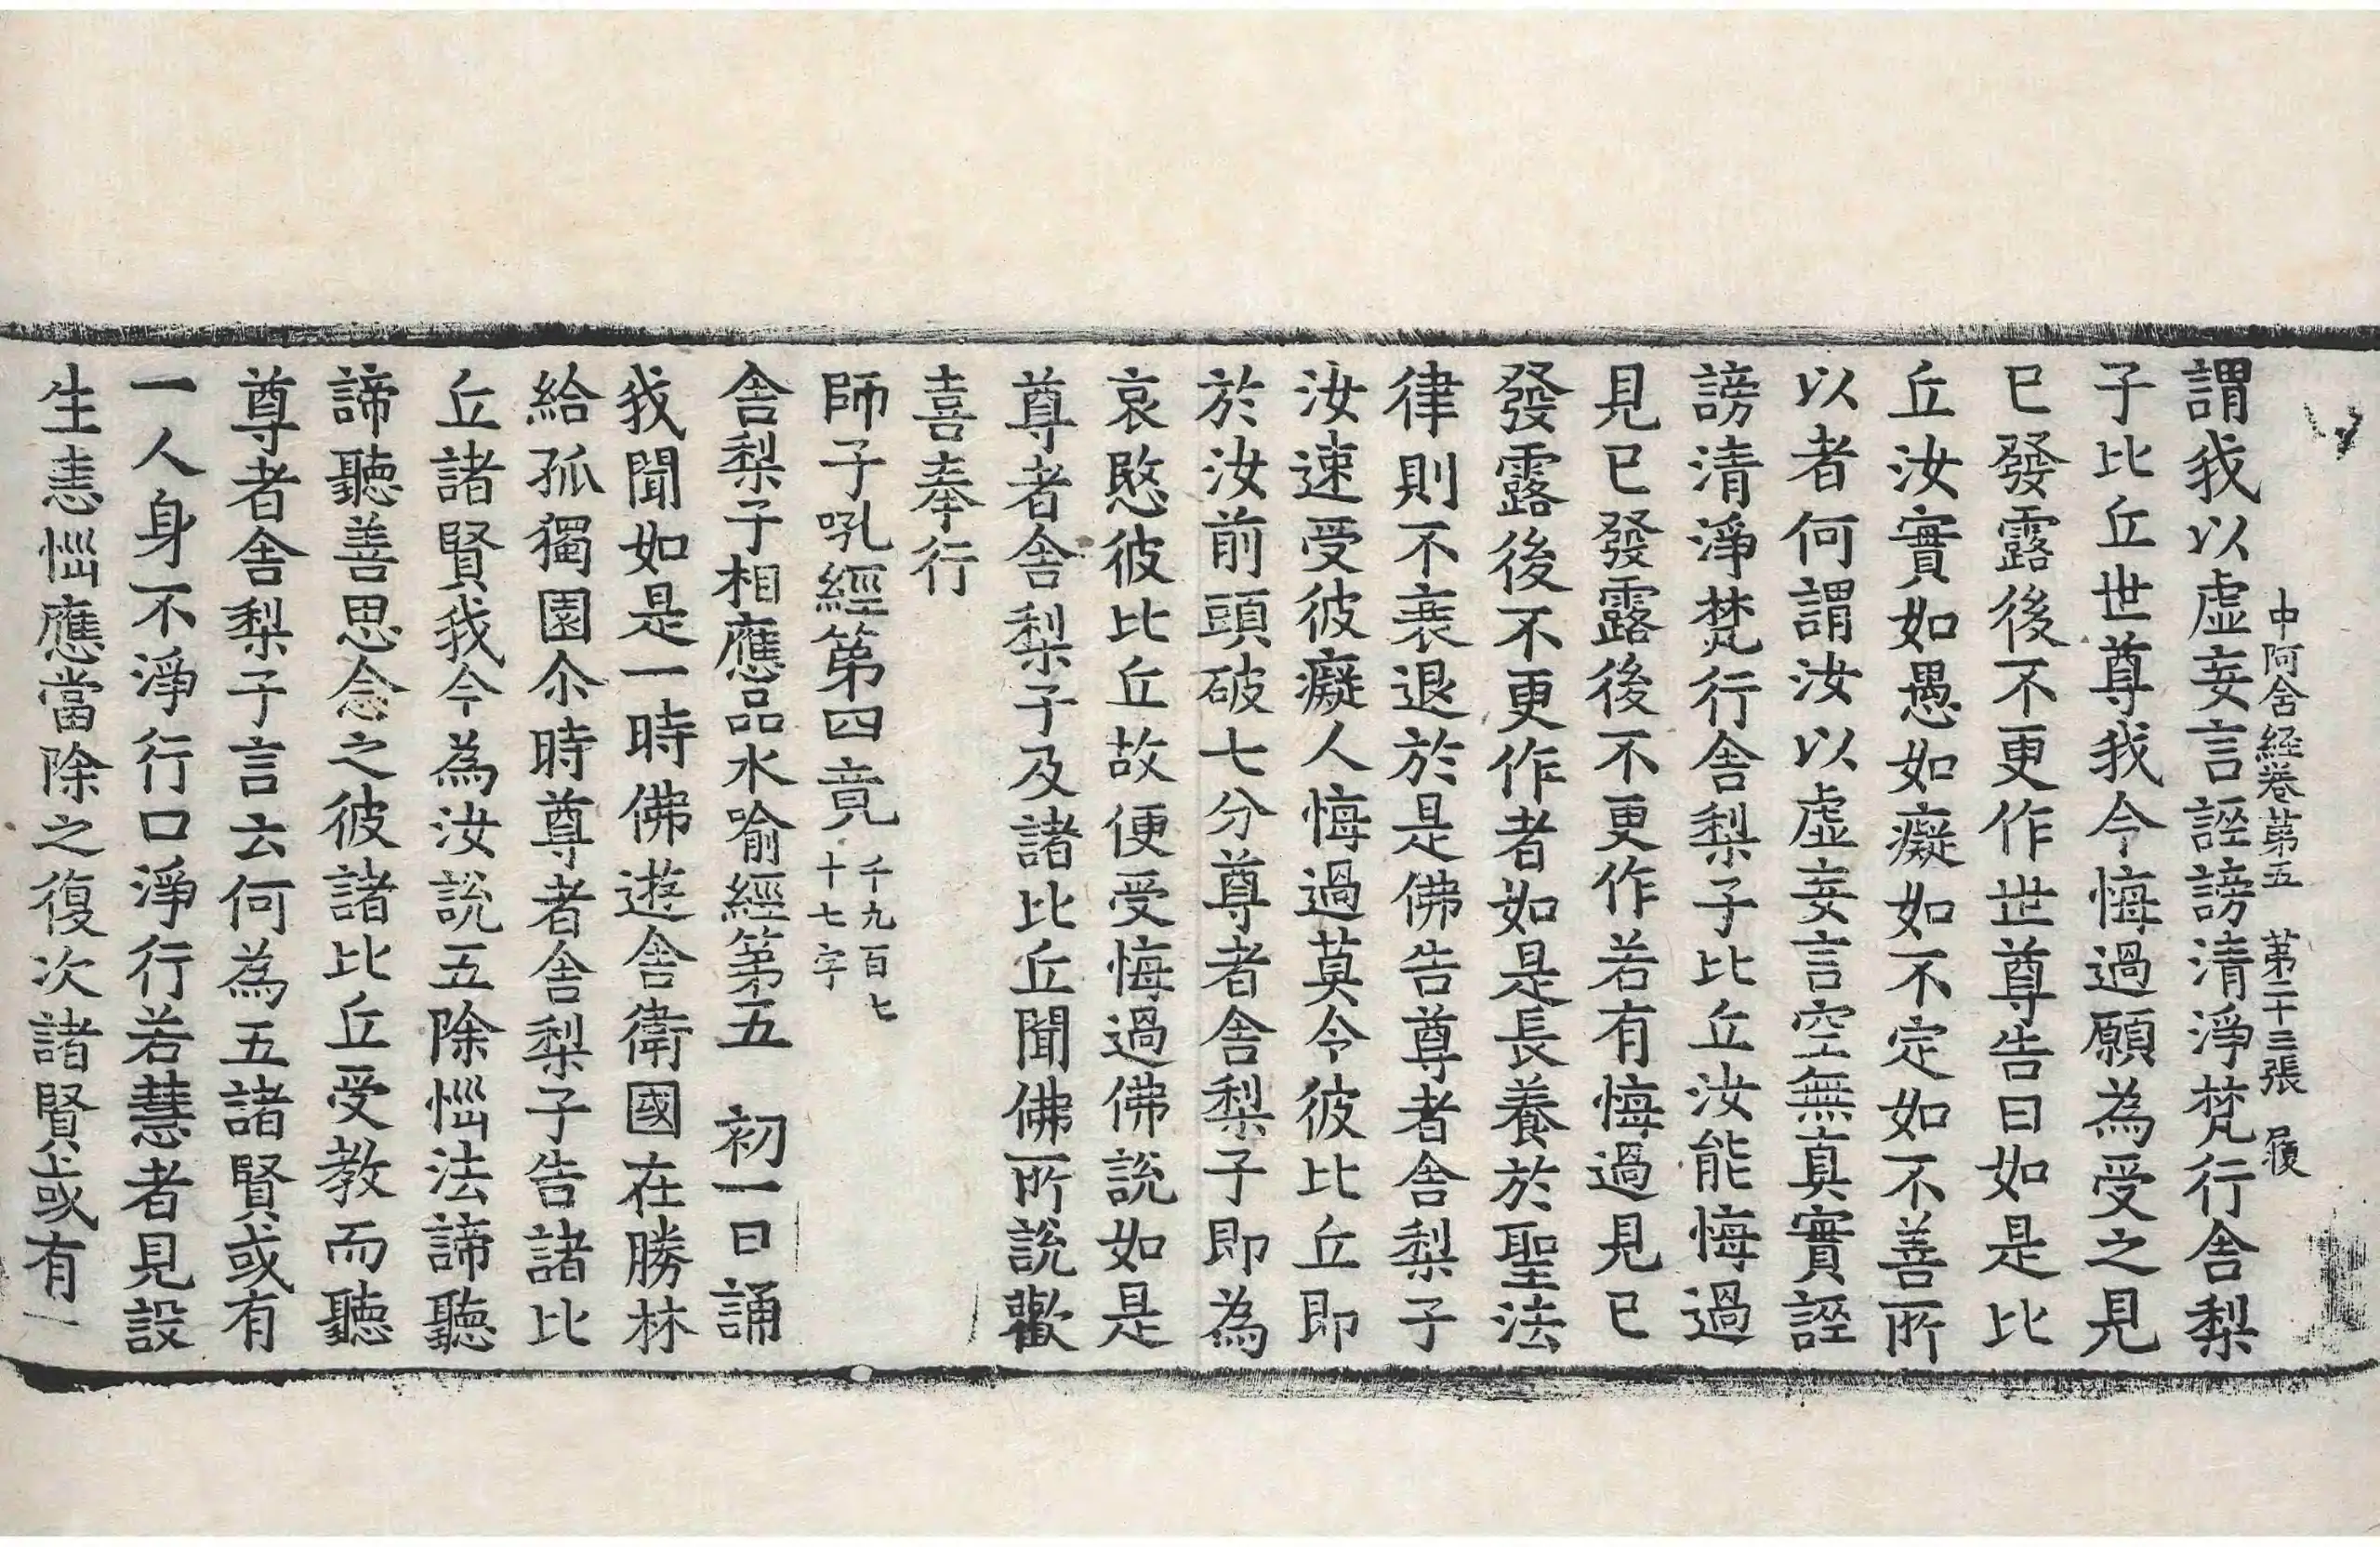 中阿含経卷苐五　苐二十三張　履
謂我以虛妄言誣謗清淨梵行舎梨
子比丘世尊我今悔過願為受之見
已發露後不更作世尊告曰如是比
丘汝實如愚如癡如不定如不善所
以者何謂汝以虛妄言空無真實誣
謗清淨梵行舎梨子比丘汝能悔過
見已發露後不更作若有悔過見已
發露後不更作者如是長養於聖法
律則不衰退於是佛告尊者舎梨子
汝速受彼癡人悔過莫令彼比丘即
於汝前頭破七分尊者舎梨子即為
哀愍彼比丘故便受悔過佛說如是
尊者舎梨子及諸比丘聞佛所說歡
喜奉行
師子吼經第四竟
千九百七
十七字
舎梨子相應品水喻經第五　初一日誦
我聞如是一時佛遊舎衛國在勝林
給孤獨園尒時尊者舎梨子告諸比
丘諸賢我今為汝說五除惱法諦聽
諦聽善思念之彼諸比丘受教而聽
尊者舎梨子言云何為五諸賢或有
一人身不淨行口淨行若慧者見設
生恚惱應當除之復次諸賢或有一